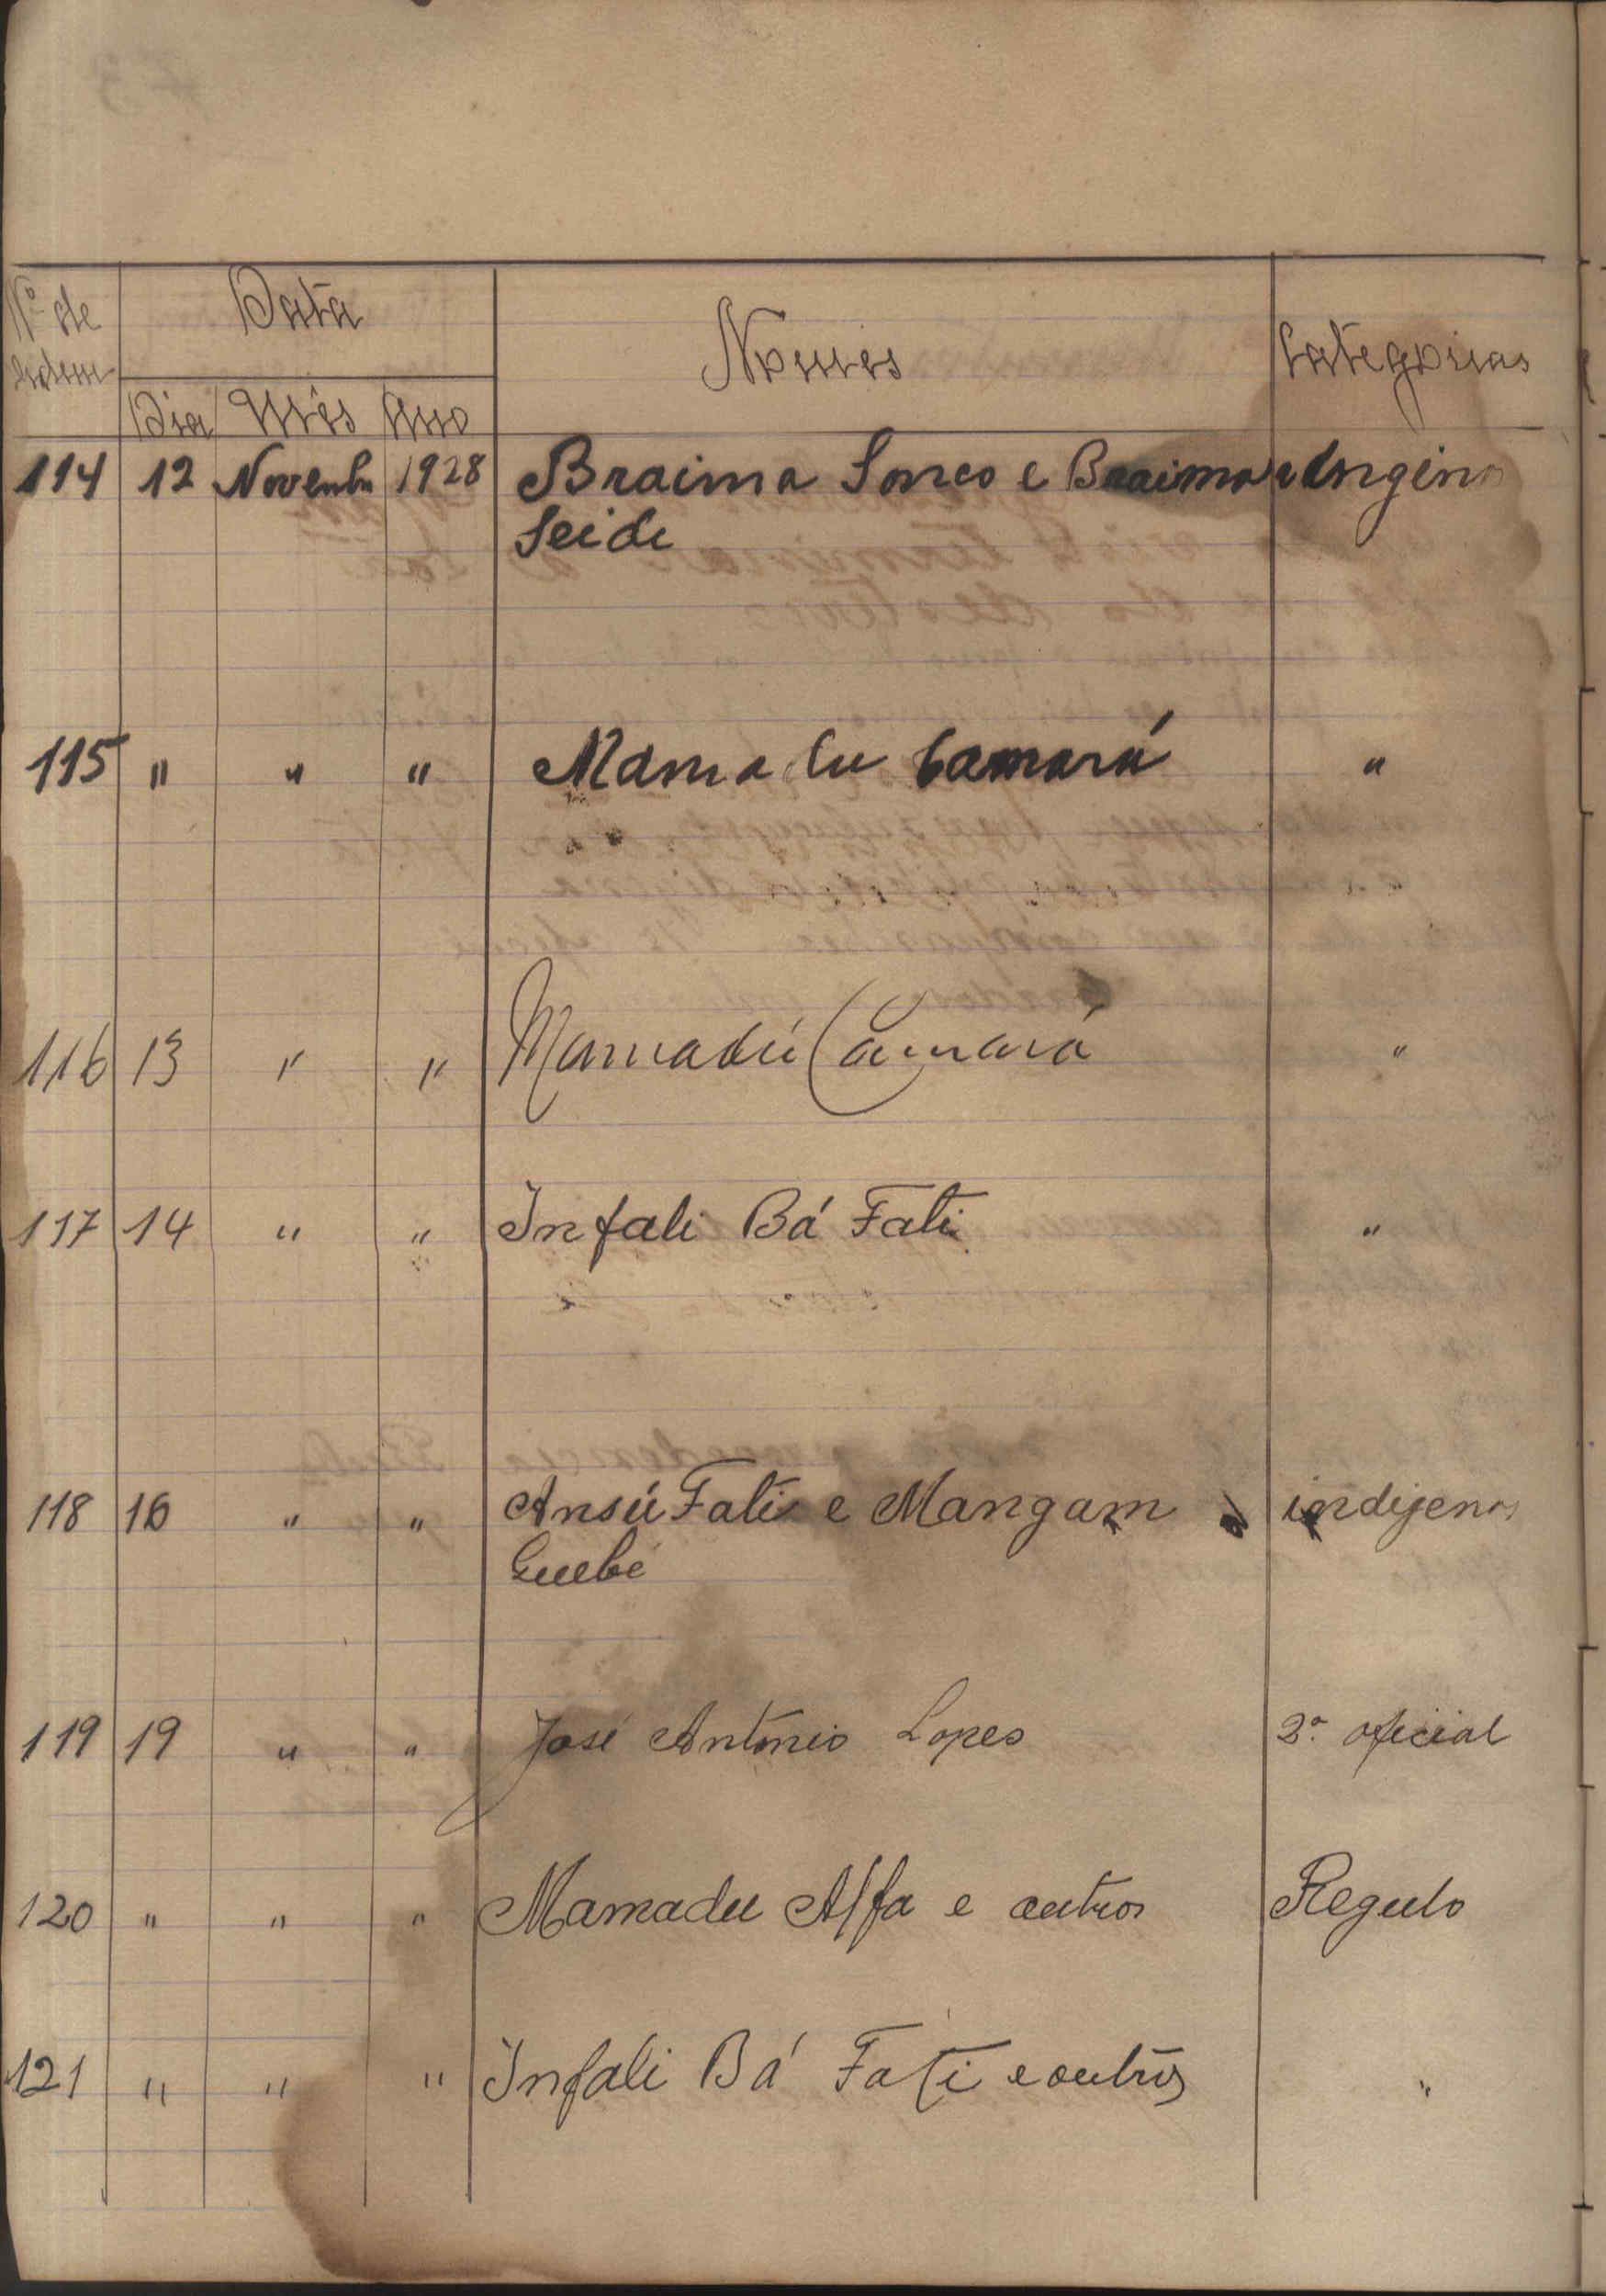 Nº de Data Nomes Categorias
ordem
Dia Mês Ano
114 12 Novembro 1928 Braima Sonco e Braima
Seidi
115 " " " Mamadu Camará "
116 13 " " Mamadú Camará "
117 14 " " Infali Bá Fati "
118 16 " " Ansú Fati e Mangam indigenas
Guebé
119 19 " " José António Lopes 2º oficial
120 " " " Mamadu Alfa e outros Regulo
121 " " " Infali Bá Fati e outros "